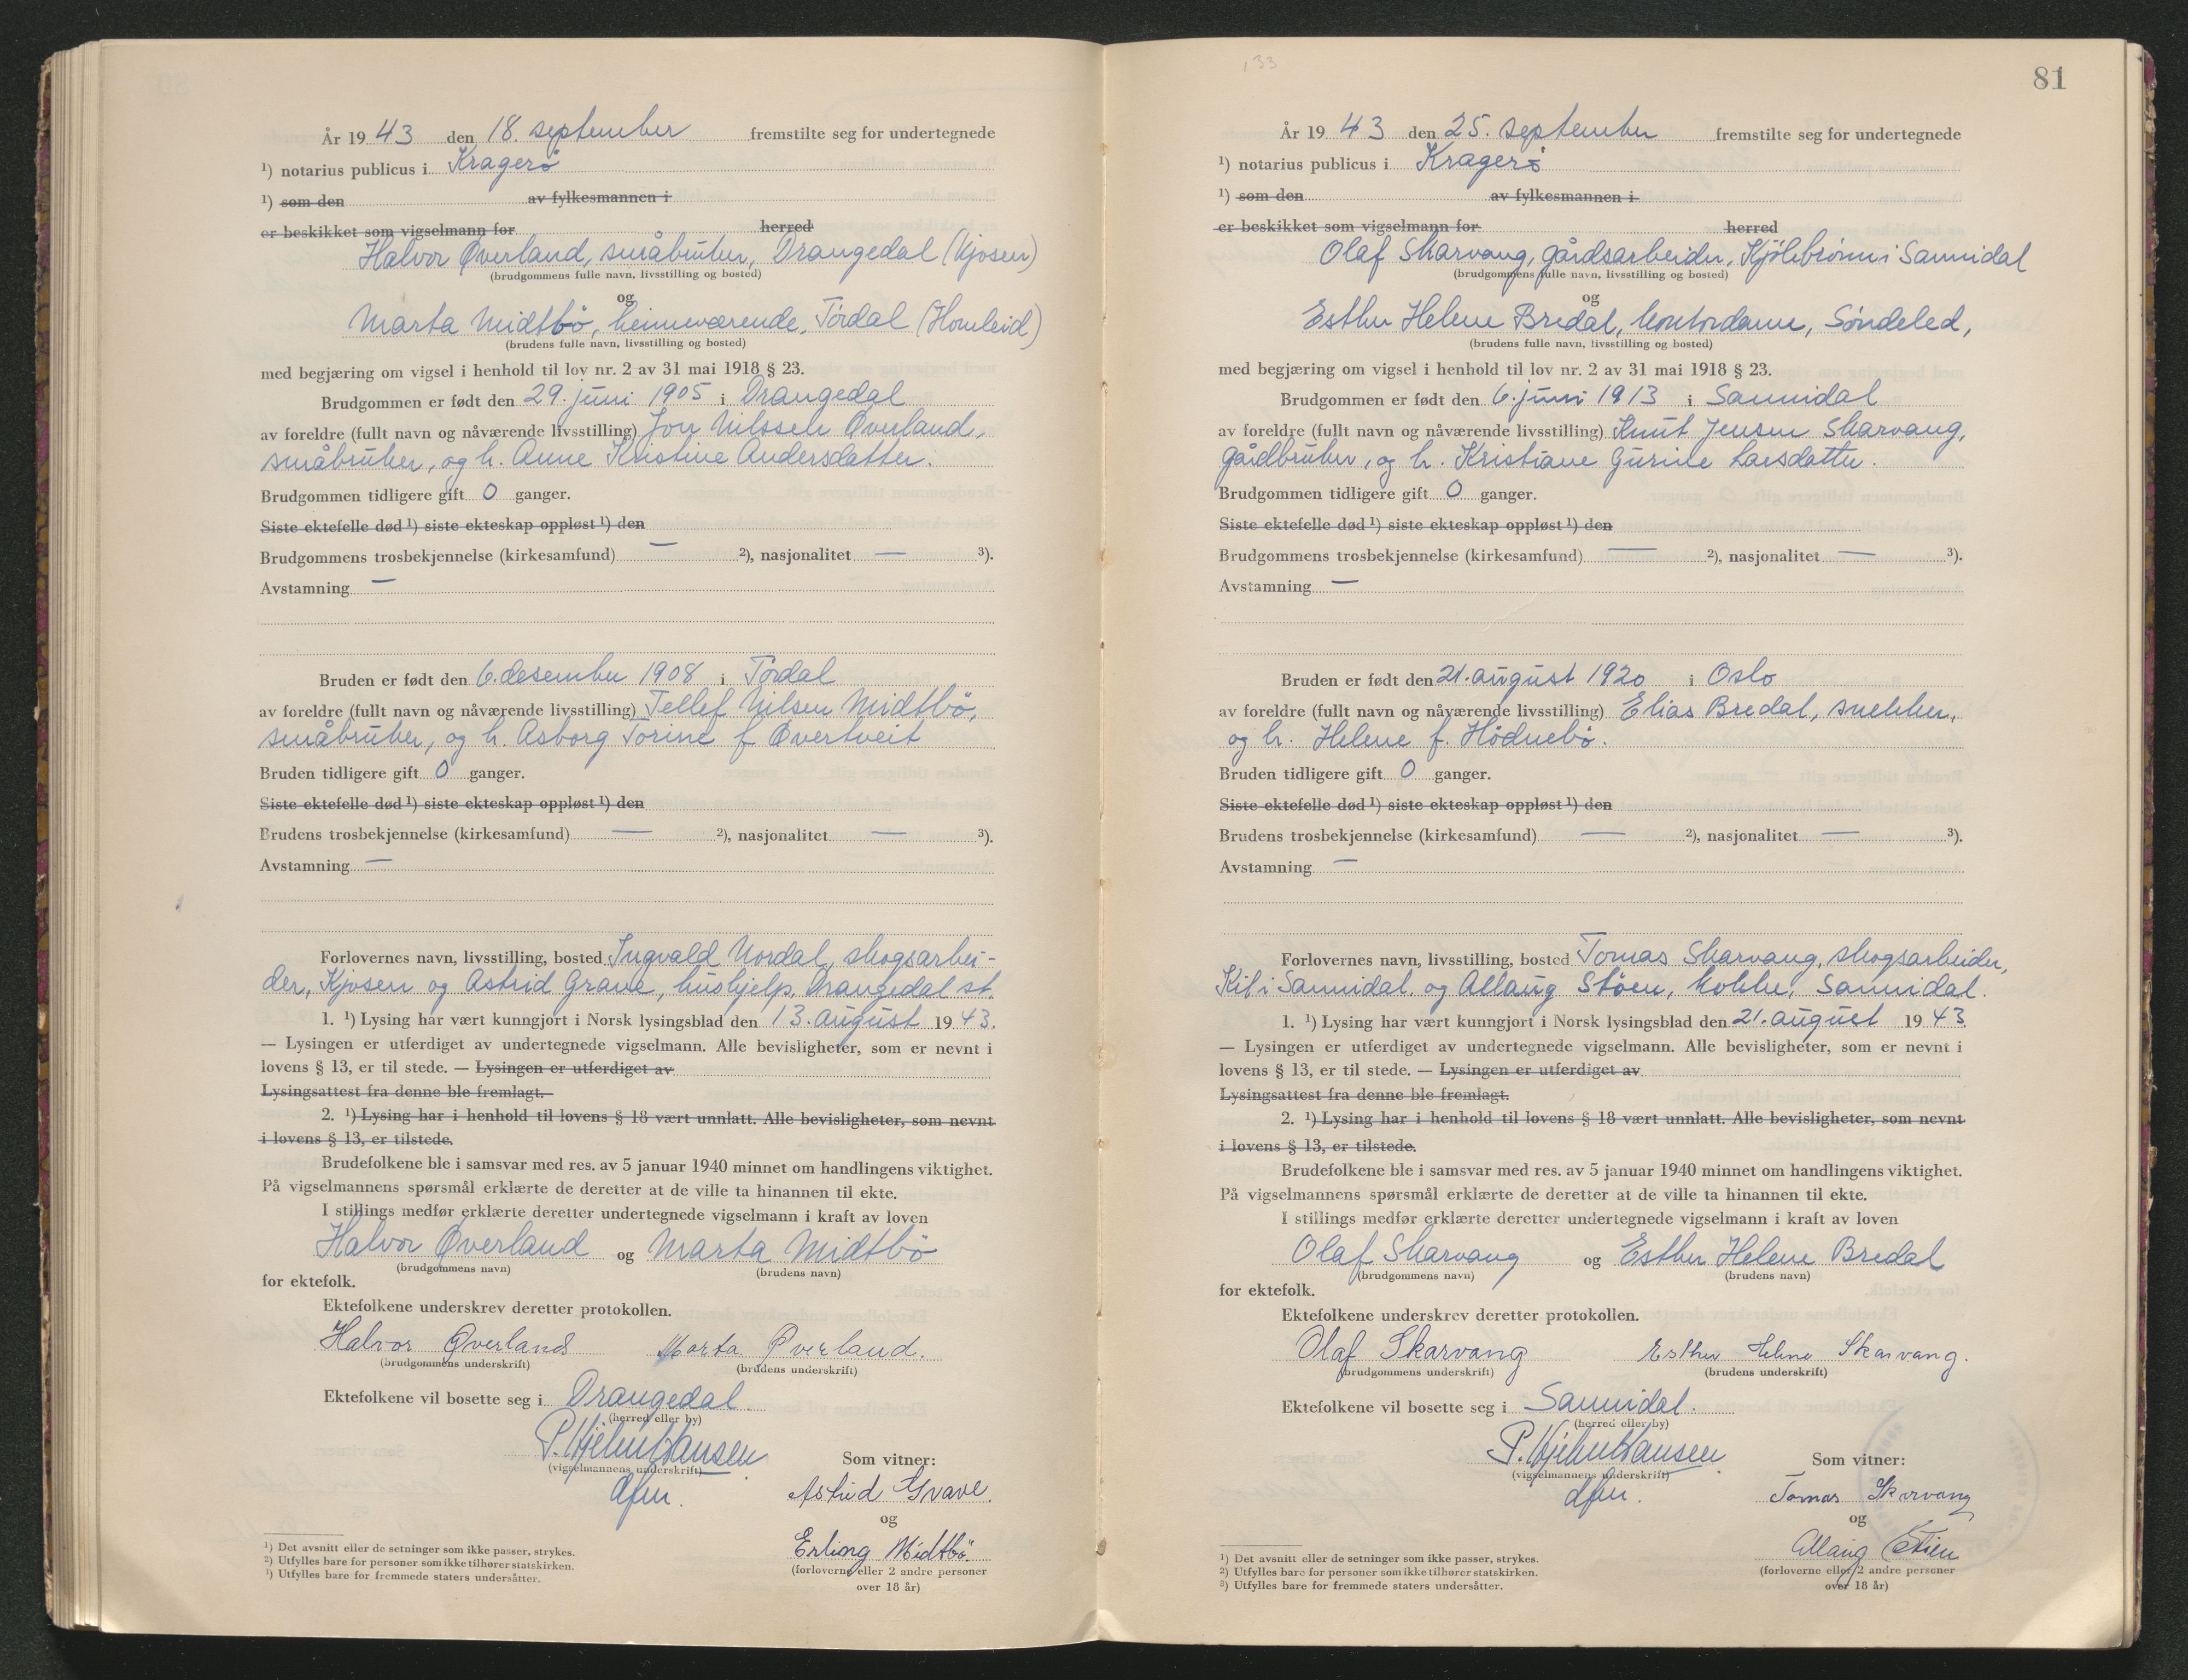 År 19 43 den 18. september fremstilte seg for undertegnede
1) notarius publicus i Kragerø
1) som den av fylkesmannen i
er beskikket som vigselmann for herred
Halvor Øverland, småbruker, Drangedal (Kjosen)
(brudgommens fulle navn, livsstilling og bosted)
og
Marta Midtbö, heimeværende, Tördal (Homleid)
(brudens fulle navn, livsstilling og bosted)
med begjæring om vigsel i henhold til lov nr. 2 av 31 mai 1918 § 23.
Brudgommen er født den 29. juni 1905 i Drangedal
av foreldre (fullt navn og nåværende livsstilling) Jon Nilssen Øverland,
småbruker, og h. Anne Kristine Andersdatter.
Brudgommen tidligere gift 0 ganger.
Siste ektefelle død 1) siste ekteskap oppløst 1) den
Brudgommens trosbekjennelse (kirkesamfund) — 2), nasjonalitet — 3).
Avstamning —
Bruden er født den 6. desember 1908 i Tördal
av foreldre (fullt navn og nåværende livsstilling) Tellef Nilsen Midtbö,
småbruker, og h. Asborg Torine f Øvertveit
Bruden tidligere gift 0 ganger.
Siste ektefelle død 1) siste ekteskap oppløst 1) den
Brudens trosbekjennelse (kirkesamfund) — 2), nasjonalitet — 3).
Avstamning —
Forlovernes navn, livsstilling, bosted Ingvald Nordal, skogsarbei-
der, Kjosen og Astrid Grave, hushjelp, Drangedal st.
1. 1) Lysing har vært kunngjort i Norsk lysingsblad den 13. august 19 43.
— Lysingen er utferdiget av undertegnede vigselmann. Alle bevisligheter, som er nevnt i
lovens § 13, er til stede. — Lysingen er utferdiget av
Lysingsattest fra denne ble fremlagt.
2. 1) Lysing har i henhold til lovens § 18 vært unnlatt. Alle bevisligheter, som nevnt
i lovens § 13, er tilstede.
Brudefolkene ble i samsvar med res. av 5 januar 1940 minnet om handlingens viktighet.
På vigselmannens spørsmål erklærte de deretter at de ville ta hinannen til ekte.
I stillings medfør erklærte deretter undertegnede vigselmann i kraft av loven
Halvor Øverland og Marta Midtbö
(brudgommens navn) (brudens navn)
for ektefolk.
Ektefolkene underskrev deretter protokollen.
Halvor Øverland Marta Øverland.
(brudgommens underskrift) (brudens underskrift)
Ektefolkene vil bosette seg i Drangedal.
(herred eller by)
P. Hjelm Hansen
(vigselmannens underskrift)
dfm.
Som vitner:
Astrid Grave.
og
Erling Midtbö.
(forloverne eller 2 andre personer
over 18 år)
1) Det avsnitt eller de setninger som ikke passer, strykes.
2) Utfylles bare for personer som ikke tilhører statskirken.
3) Utfylles bare for fremmede staters undersåtter.
133
81
År 19 43 den 25. september fremstilte seg for undertegnede
1) notarius publicus i Kragerø
1) som den av fylkesmannen i
er beskikket som vigselmann for herred
Olaf Skarvang, gårdsarbeider, Kjölebrönn i Sannidal
(brudgommens fulle navn, livsstilling og bosted)
og
Esther Helene Bredal, kontordame, Söndeled,
(brudens fulle navn, livsstilling og bosted)
med begjæring om vigsel i henhold til lov nr. 2 av 31 mai 1918 § 23.
Brudgommen er født den 6. juni 1913 i Sannidal
av foreldre (fullt navn og nåværende livsstilling) Knut Jensen Skarvang,
gårdbruker, og h. Kristiane Gurine Larsdatter.
Brudgommen tidligere gift 0 ganger.
Siste ektefelle død 1) siste ekteskap oppløst 1) den
Brudgommens trosbekjennelse (kirkesamfund) — 2), nasjonalitet — 3).
Avstamning —
Bruden er født den 21. august 1920 i Oslo
av foreldre (fullt navn og nåværende livsstilling) Elias Bredal, snekker,
og h. Helene f. Hödnebö.
Bruden tidligere gift 0 ganger.
Siste ektefelle død 1) siste ekteskap oppløst 1) den
Brudens trosbekjennelse (kirkesamfund) — 2), nasjonalitet — 3).
Avstamning —
Forlovernes navn, livsstilling, bosted Tomas Skarvang, skogsarbeider,
Kil i Sannidal. og Allaug Stöen, kokke, Sannidal.
1. 1) Lysing har vært kunngjort i Norsk lysingsblad den 21. august 19 43
— Lysingen er utferdiget av undertegnede vigselmann. Alle bevisligheter, som er nevnt i
lovens § 13, er til stede. — Lysingen er utferdiget av
Lysingsattest fra denne ble fremlagt.
2. 1) Lysing har i henhold til lovens § 18 vært unnlatt. Alle bevisligheter, som nevnt
i lovens § 13, er tilstede.
Brudefolkene ble i samsvar med res. av 5 januar 1940 minnet om handlingens viktighet.
På vigselmannens spørsmål erklærte de deretter at de ville ta hinannen til ekte.
I stillings medfør erklærte deretter undertegnede vigselmann i kraft av loven
Olaf Skarvang og Esther Helene Bredal
(brudgommens navn) (brudens navn)
for ektefolk.
Ektefolkene underskrev deretter protokollen.
Olaf Skarvang Esther Helene Skarvang.
(brudgommens underskrift) (brudens underskrift)
Ektefolkene vil bosette seg i Sannidal.
(herred eller by)
P. Hjelm Hansen
(vigselmannens underskrift)
dfm.
Som vitner:
Tomas Skarvang
og
Allaug Stöen
(forloverne eller 2 andre personer
over 18 år)
1) Det avsnitt eller de setninger som ikke passer, strykes.
2) Utfylles bare for personer som ikke tilhører statskirken.
3) Utfylles bare for fremmede staters undersåtter.